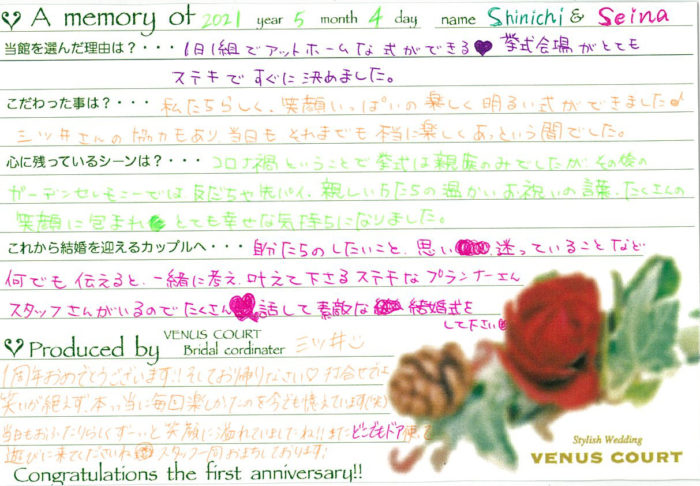 A memory of 2021 year 5 month 4 day name Shinichi & Seina
当館を選んだ理由は？・・・1日1組でアットホームな式ができる♥ 挙式会場がとても
ステキですぐに決めました。
こだわった事は？・・・私たちらしく、笑顔いっぱいの楽しく明るい式ができました♪
三ツ井さんの協力もあり、当日も それまでも 本当に楽しくあっという間でした。
心に残っているシーンは？・・・コロナ禍ということで挙式は親族のみでしたが、その後の
ガーデンセレモニーでは友だちや先パイ、親しい方たちの温かいお祝いの言葉、たくさんの
笑顔に包まれ とても幸せな気持ちになりました。
これから結婚を迎えるカップルへ・・・自分たちのしたいこと、思い 迷っていることなど
何でも 伝えると、一緒に考え、叶えて下さるステキなプランナーさん
スタッフさんがいるのでたくさん 話して 素敵な 結婚式を
して下さい
Produced by VENUS COURT
Bridal cordinater 三ツ井
1周年おめでとうございます!!そしてお帰りなさい♡ 打合せでは
笑いが絶えず、本っ当に毎回楽しかったのを今でも憶えています(笑)
当日もおふたりらしくずーっと笑顔に溢れていましたね!!また どこでもドア使って
遊びに来てくださいね スタッフ一同お待ちしております!
Congratulations the first anniversary!!
Stylish Wedding
VENUS COURT